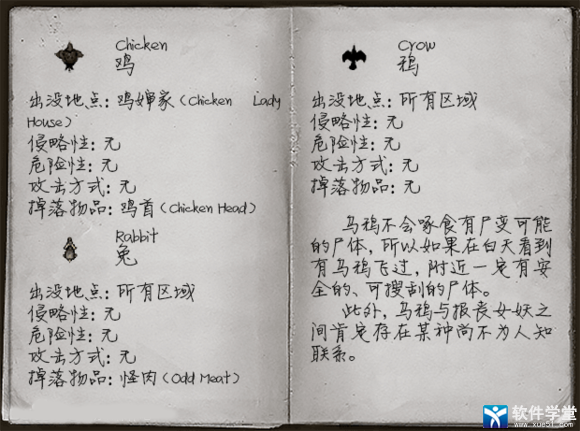 Chicken
鸡
出没地点：鸡婶家（Chicken Lady
House）
侵略性：无
危险性：无
攻击方式：无
掉落物品：鸡首（Chicken Head）
Rabbit
兔
出没地点：所有区域
侵略性：无
危险性：无
攻击方式：无
掉落物品：怪肉（Odd Meat）
Crow
鸦
出没地点：所有区域
侵略性：无
危险性：无
攻击方式：无
掉落物品：无
乌鸦不会啄食有尸变可能
的尸体，所以如果在白天看到
有乌鸦飞过，附近一定有安
全的、可搜刮的尸体。
此外，乌鸦与报丧女妖之
间肯定存在某种尚不为人知
联系。
软件学堂
www.xue51.com